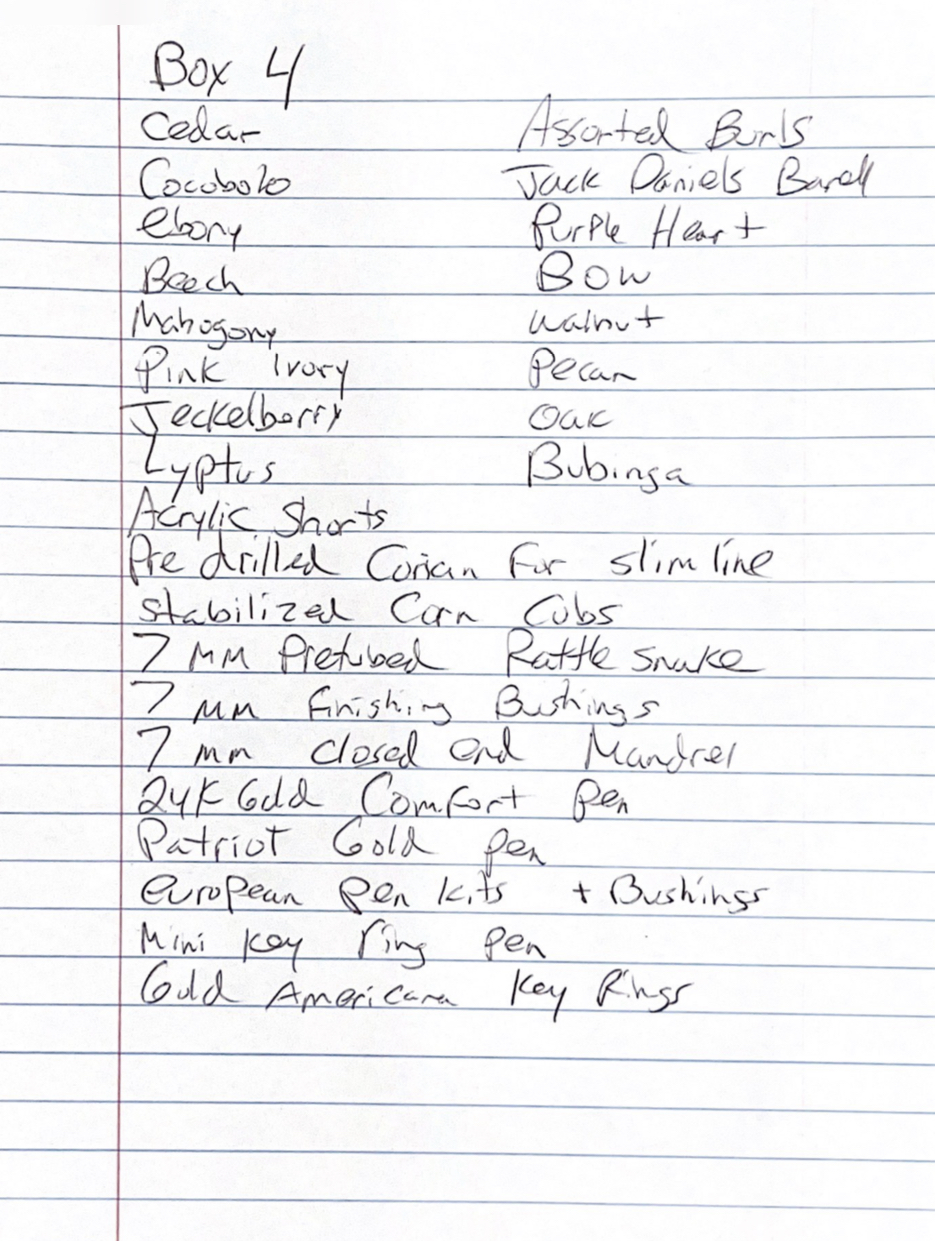 Box 4
Cedar Assorted Burls
Cocobolo Jack Daniels Barell
ebony Purple Heart
Beech Bow
Mahogony walnut
Pink Ivory Pecan
Jeckelberry Oak
Lyptus Bubinga
Acrylic Shorts
Pre drilled Corian For slim line
stabilized Corn Cobs
7 MM Pretubed Rattle snake
7 MM finishing Bushings
7 mm closed end Mandrel
24K Gold Comfort Pen
Patriot Gold pen
european pen kits + Bushings
Mini key ring pen
Gold Americana key Rings